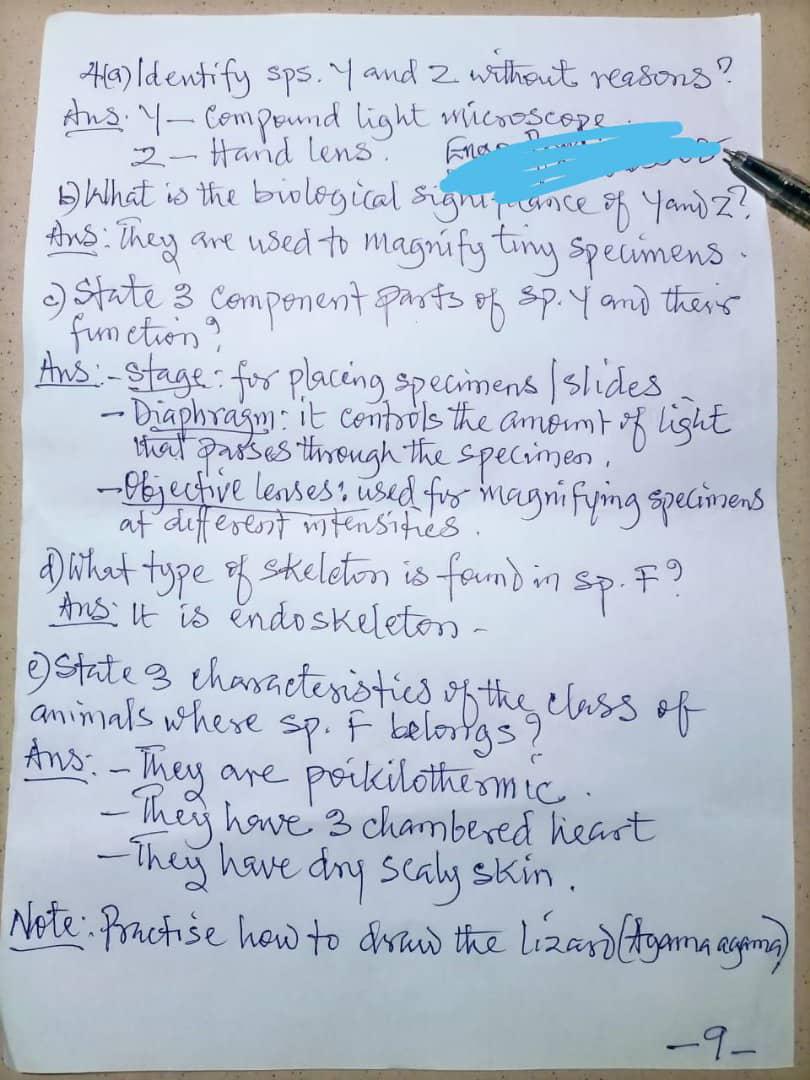 4(a) Identify sps. Y and Z without reasons?
Ans. Y – Compound light microscope.
Z – Hand lens.
b) What is the biological significance of Y and Z?
Ans: They are used to magnify tiny specimens.
c) State 3 component parts of sp. Y and their
function?
Ans: - Stage: for placing specimens / slides
- Diaphragm: it controls the amount of light
that passes through the specimen.
- Objective lenses: used for magnifying specimens
at different intensities.
d) What type of skeleton is found in sp. F?
Ans: It is endoskeleton -
e) State 3 characteristics of the class of
animals where sp. F belongs?
Ans: - They are poikilothermic.
- They have 3 chambered heart
- They have dry scaly skin.
Note: Practise how to draw the lizard (Agama agama)
- 9 -